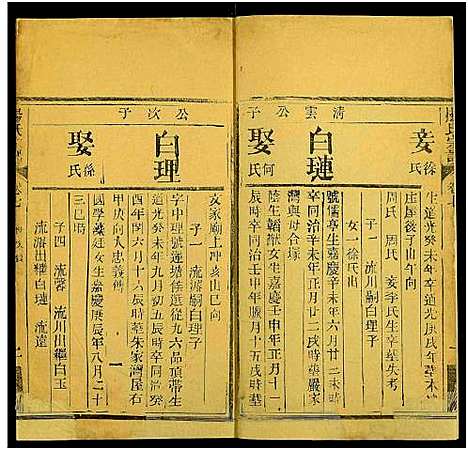 生道光癸未年卒道光庚戌年墓本
庄屋後子山午向
妾徐氏
周氏 周氏 妾季氏生卒墓失考
子一 流川嗣白理子
女一徐氏出
清雲公子
白璉
號儒亭生嘉慶辛未年六月廿二未時
卒同治辛未年正月廿二戌時墓嚴家
灣與母合塚
娶何氏
陰生 女嘉慶壬申年正月十一
辰時卒同治壬申年臘月十五戌時墓
文家廟上冲亥山巳向
子一 流源嗣白理子
公次子
白理
字中理號蓮塘徒逛從九六品頂帶生
道光癸未年九月初五時卒同治癸
酉年閏六月十六辰時墓朱家灣屋右
甲庚向人忠義傳
娶徐氏
國學 廷女生嘉慶庚辰年八月二十
三巳時
子四 流馨 流川出繼白玉
流源出繼白璉 流遠